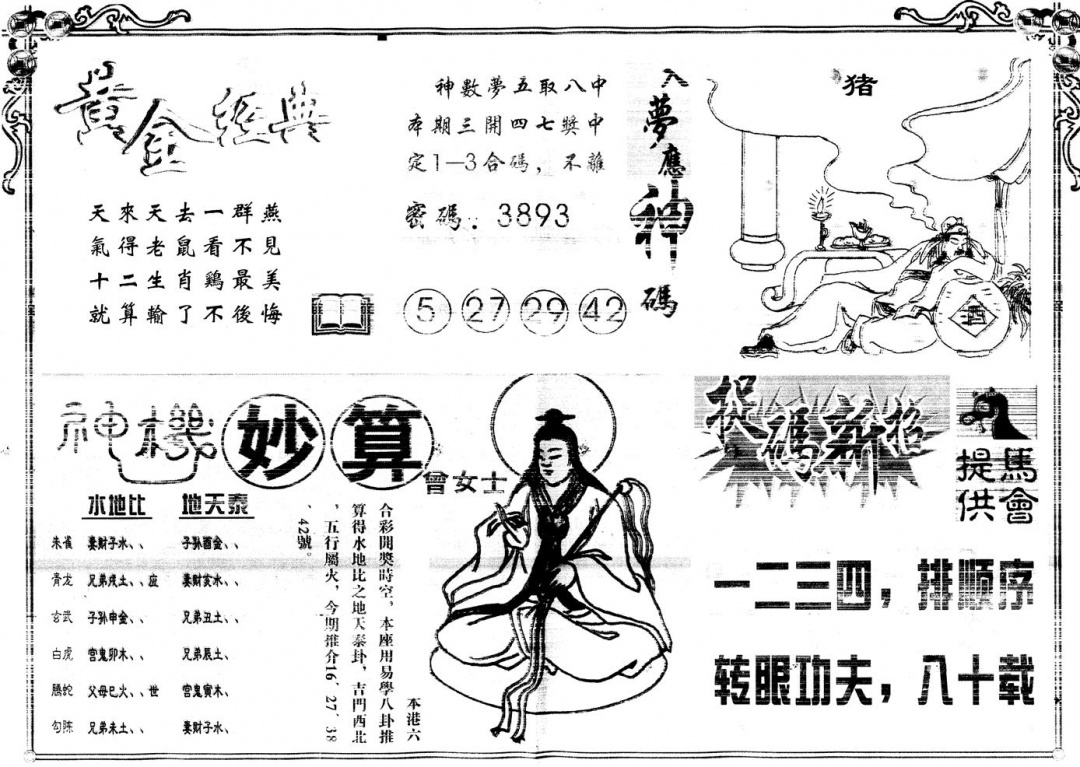 黃金經典
天來天去一群燕
氣得老鼠看不見
十二生肖鷄最美
就算輸了不後悔
神數夢五取八中
本期三開四七獎中
定1—3合碼，不離
密碼：3893
5 27 29 42
入夢應神碼
猪
酒
神機妙算
曾女士
水地比 地天泰
朱雀 妻财子水、、 子孙酉金、、
青龙 兄弟戌土、、应 妻财亥水、、
玄武 子孙申金、、 兄弟丑土、、
白虎 官鬼卯木、、 兄弟辰土、
腾蛇 父母巳火、、世 官鬼寅木、
勾陈 兄弟未土、、 妻财子水、
本港六
合彩開獎時空，本座用易學八卦推
算得水地比之地天泰卦，吉門西北
，五行屬火，今期推介16、27、38
、42號。
捉碼新招
馬會
提供
一二三四，排顺序
转眼功夫，八十载